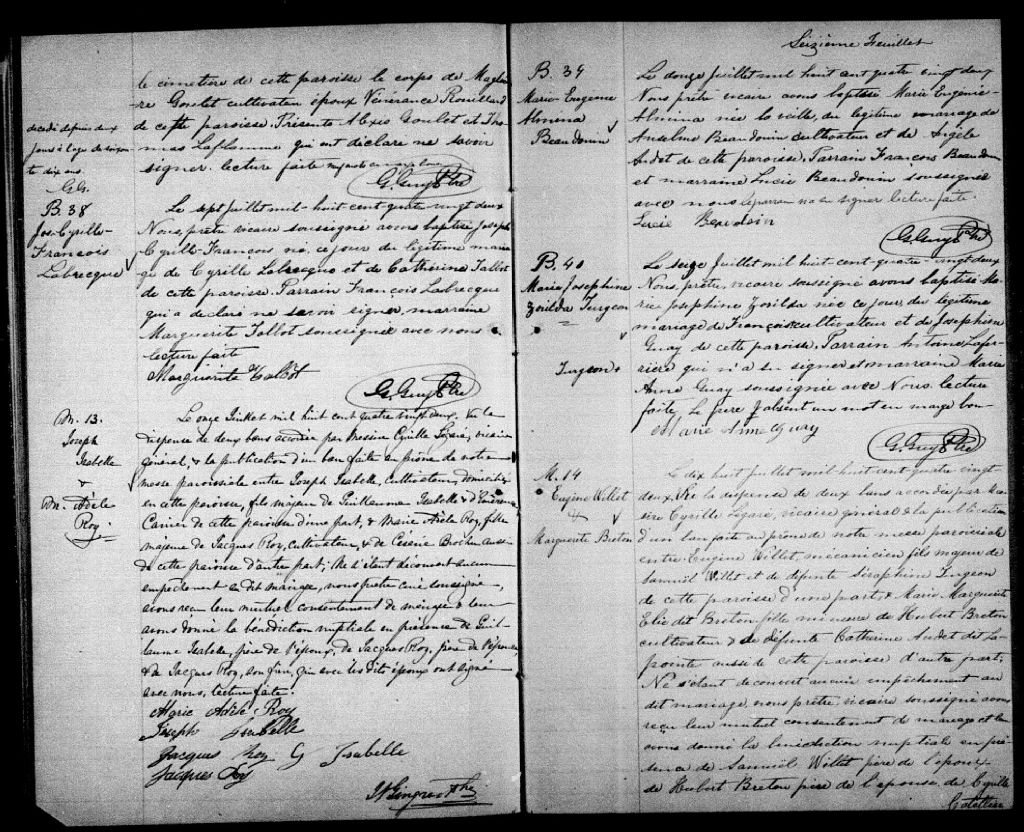 le cimetière de cette paroisse le corps de Magloi-
re Goulet cultivateur époux Vénérance Rouillard
décédé depuis deux
jours à l'age de soixan-
te dix ans.
G.G.
de cette paroisse. Présents Alexis Goulet et Tho-
mas Laflamme qui ont déclaré ne savoir
signer. lecture faite
G. Guy Ptre
B. 38
Jos-Cyrille-
François
Labrecque
Le sept juillet mil-huit cent quatre vingt deux
Nous, prêtre vicaire soussigné avons baptisé Joseph
Cyrille-François né ce jour du légitime maria-
ge de Cyrille Labrecque et de Catherine Talbot
de cette paroisse. Parrain François Labrecque
qui a déclaré ne savoir signer, marraine
Marguerite Talbot soussignée avec nous
lecture faite
Marguerite Talbot
G. Guy Ptre
M. 13.
Joseph
Isabelle
&
M. Adèle
Roy
Le onze Juillet mil huit cent quatre vingt deux, Vu la
dispense de deux bans accordée par Messire Cyrille Légaré, vicaire
général, & la publication d'un ban faite au prône de notre
messe paroissiale entre Joseph Isabelle, Cultivateur, domicilié
en cette paroisse, fils majeur de Guillaume Isabelle &
Carrier de cette paroisse d'une part, & Marie Adèle Roy, fille
majeure de Jacques Roy, cultivateur, & de Brochu aussi
de cette paroisse d'autre part; Ne s'étant découvert aucun
empêchement au dit mariage, nous prêtre curé soussigné,
avons reçu leur mutuel consentement de mariage & leur
avons donné la bénédiction nuptiale en présence de Guil-
laume Isabelle, père de l'époux, de Jacques Roy, père de l'épouse
& de Jacques Roy, son frère, qui avec les dits époux ont signé
avec nous, lecture faite.
Marie Adèle Roy
Joseph Isabelle
Jacques Roy G Isabelle
Jacques Roy
Ptre
Seizième Feuillet
B. 39
Marie-Eugénie
Almina
Beaudouin
Le douze juillet mil huit cent quatre vingt deux
Nous prêtre vicaire avons baptisé Marie Eugénie-
Almina née la veille, du légitime mariage de
Anselme Beaudouin cultivateur et de Angèle
Audet de cette paroisse. Parrain François Beaudouin
et marraine Lucie Beaudouin soussignée
avec nous le parrain n'a su signer lecture faite.
Lucie Beaudoin
G. Guy Ptre
B. 40
Marie Josephine
Zoilda Turgeon
Turgeon
Le seize juillet mil huit-cent-quatre vingt deux
Nous, prêtre, vicaire soussigné avons baptisé Ma-
rie Josephine Zoilda née ce jour, du légitime
mariage de François cultivateur et de Josephine
Guay de cette paroisse. Parrain Antoine Lafer-
rière qui n'a su signer et marraine Marie
Anne Guay soussignée avec Nous. lecture
faite. Le père absent un mot en marge bon
Marie Anne Guay
G. Guy Ptre
M. 14
Eugène Willet
&
Marguerite Breton
Le dix huit juillet mil huit cent quatre vingt
deux, Vu la dispense de deux bans accordée par Mes-
sire Cyrille Légaré, vicaire général & la publication
d'un ban faite au prône de notre messe paroissiale
entre Eugène Willet, mécanicien fils majeur de
Samuël Willet et de défunte Séraphine Turgeon
de cette paroisse d'une part & Marie Marguerite
Elie dit Breton, fille mineure de Hubert Breton
cultivateur & de défunte Catherine Audet dit La-
pointe aussi de cette paroisse d'autre part;
Ne s'étant découvert aucun empêchement au
dit mariage, nous prêtre, vicaire soussigné avons
reçu leur mutuel consentement de mariage et leur
avons donné la bénédiction nuptiale en pré-
sence de Samuël Willet père de l'époux
de Hubert Breton père de l'épouse, de Cyrille